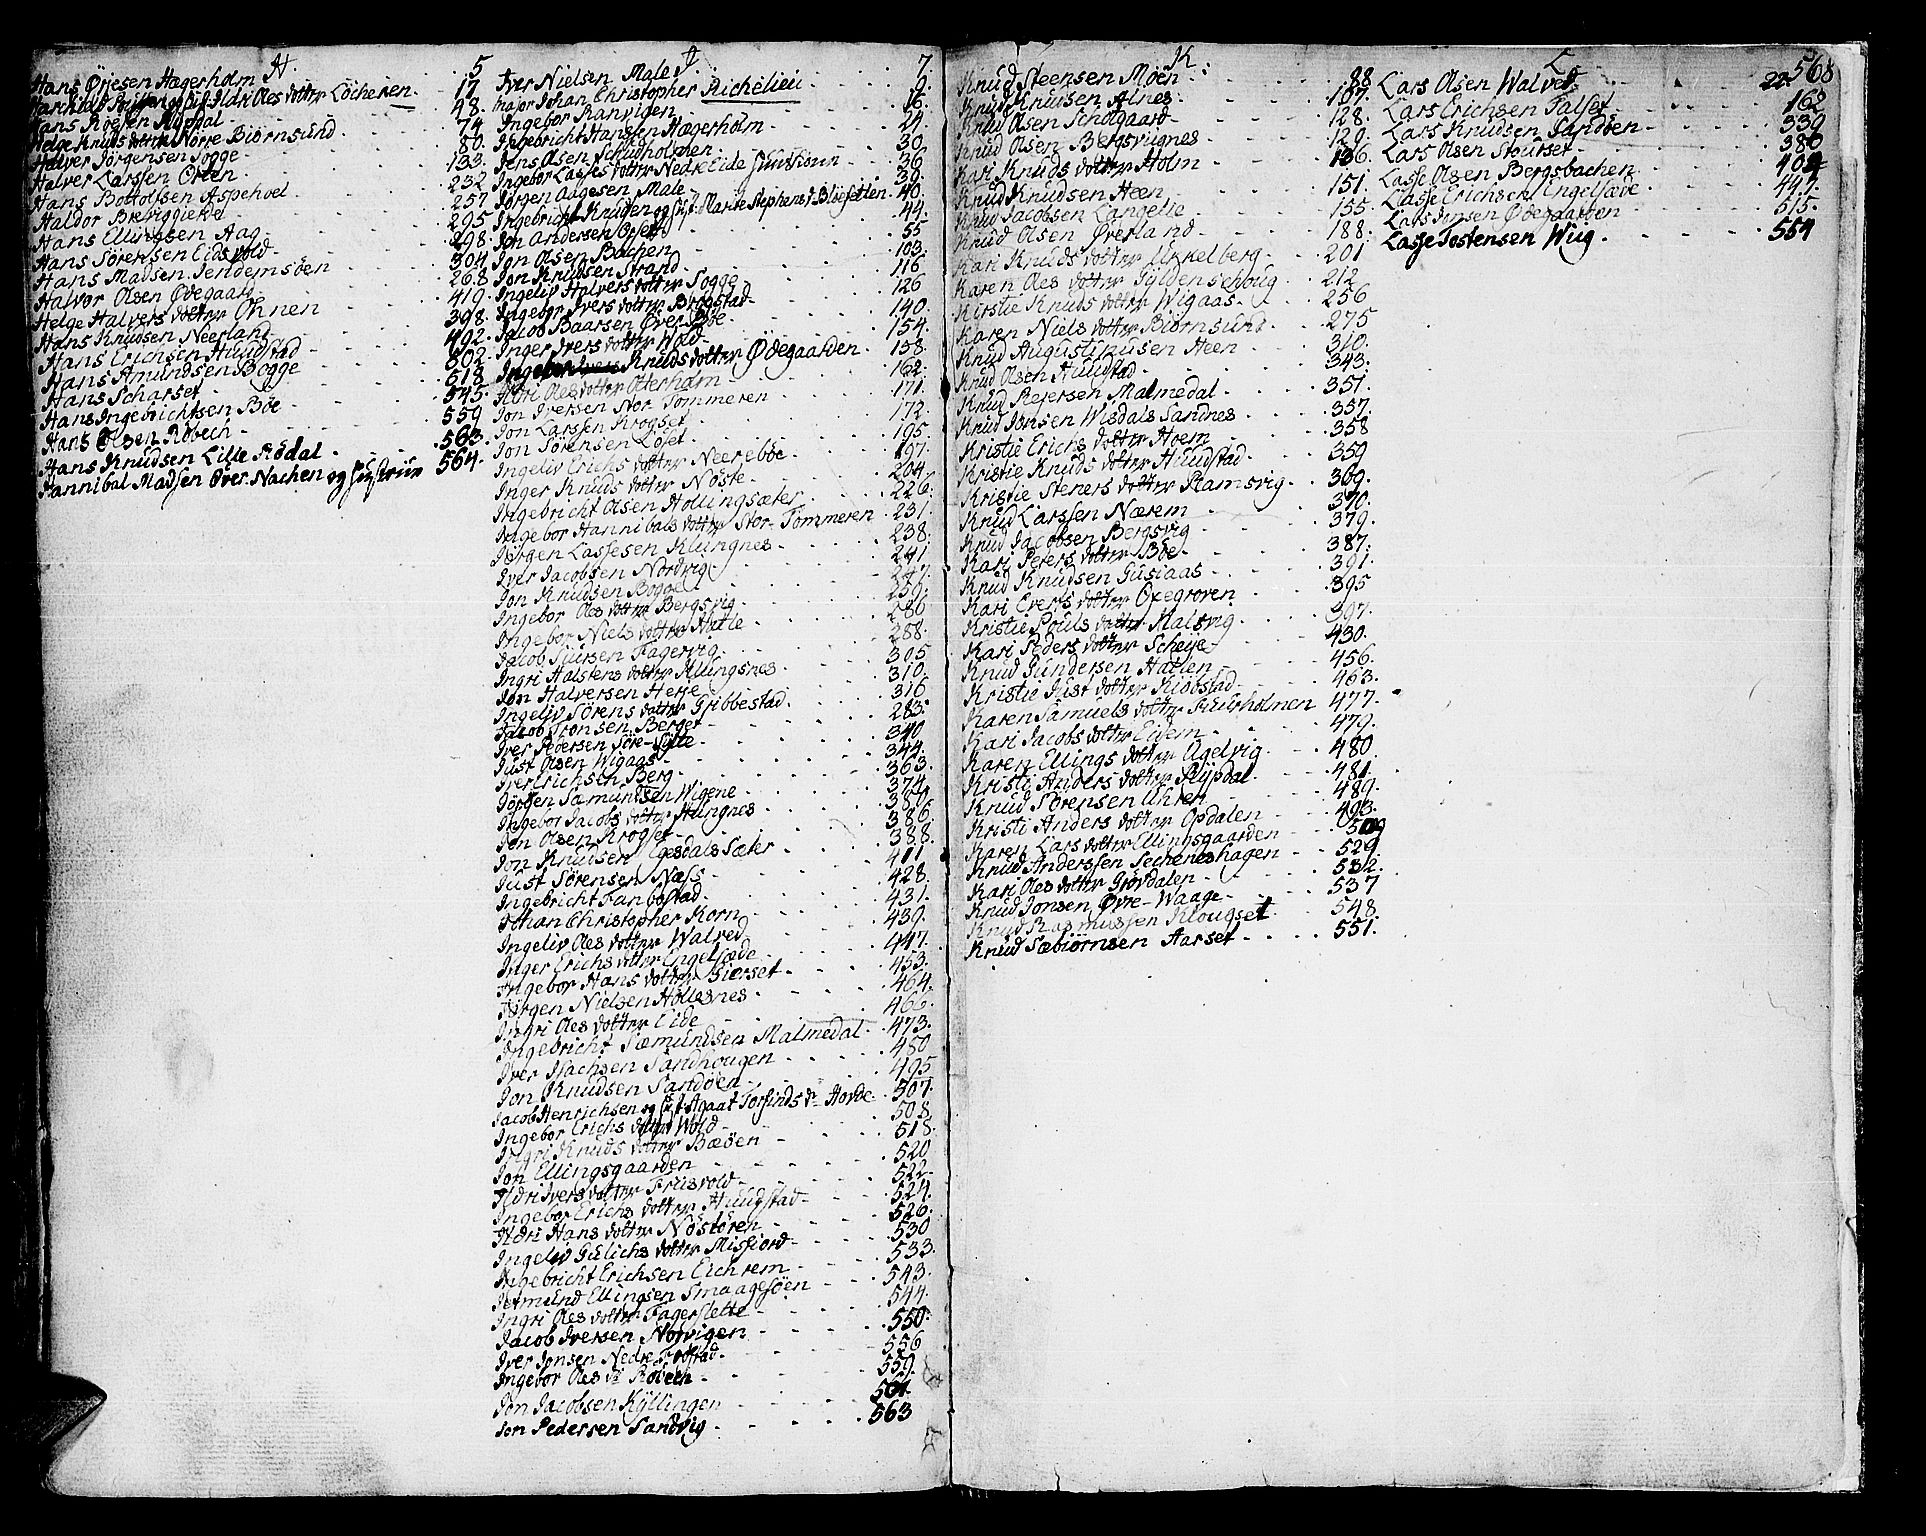 H.
Hans Örjesen Hagerholm 5
Ildri Oles dotter Löcheren 17
Hans Roesen Rypdal 48.
Helge Knuds dotter Nörre Biörnsund 74
Halver Jörgensen Sogge 80.
Halver Larssen Orten 133.
Hans Bottolfsen Aspehoel 232
Haldor Breviggieil 257
Hans Ellingsen Aag 295
Hans Sörensen Eidsvold 298.
Hans Madsen Sendemsöen 304
Halvor Olsen Ødegaard 268
Helge Halvers dotter Ohnen 419.
Hans Knudsen Neerland 398.
Hans Erichsen Huudstad 492.
Hans Amundsen Bogge 502
Hans Scharset 513
Hans Ingebrichtsen Böe 545.
Hans Olsen Röbech 559
Hans Knudsen Lille Rödal 563.
Hannibal Madsen Over Nachen og Hustrue 564.
J.
Iver Nielsen Male 7
Major Johan Christopher Richelieu 9.
Ingebor Ranvigen 16.
Ingebricht Hanssen Hagerholm 24.
Jens Olsen Schudholmen 30
Ingebor Lasses dotter Nedr Eide 36
Jörgen Aagesen Male 39.
Ingebricht Knudsen og Hust. Marite Stephens d. Bloesetlien 40.
Jon Andersen Opset 44.
Jon Olsen Bachen 55
Jon Knudsen Strand 103.
Ingeliv Halvers dotter Sogge 116
Ingebor Ivers dotter Brogstad 126
Jacob Baarsen Over Böe 140.
Inger Ivers dotter Wold 154.
Ingebor Knuds dotter Ødegaarden 158.
Ildri Oles dotter Oterholm 162.
Jon Iversen Stor-Tommeren 171.
Jon Larsen Krogset 172.
Jon Sörensen Löset 195.
Ingeliv Erichs dotter Neereböe 197.
Inger Knuds dotter Nöste 204.
Ingebricht Olsen Hollingsæter 226.
Ingebor Hannibals dotter Stor-Tommeren 231.
Jörgen Lassesen Klungnes 238.
Iver Jacobsen Nordvig 241
Jon Knudsen Bogge 247.
Ingebor Oles dotter Bergsvig 259.
Ingebor Niels dotter Hatle 286
Jacob Siursen Fagervig 288.
Ingri Halstens dotter Klungsnes 305
Jon Halversen Heje 310.
Ingeliv Sörens dotter Gribbestad 316
Jacob Tronsen Berset 283.
Iver Pedersen Söre-Sylte 340
Just Olsen Wigaas 344.
Iver Erichsen Berg 363.
Jörgen Samundsen Wigene 374
Ingebor Jacobs dotter Hungnes 380.
Jon Olsen Krogset 386.
Jon Knudsen Egesdals Sæter 388.
Just Sörensen Næss 411
Ingebricht Farbostad 428.
Johan Christopher Korn 431.
Ingeliv Oles dotter Walved 439.
Inger Erichs dotter Engelsæde 447.
Ingebor Hans dotter Gierset 453.
Jörgen Nielsen Hollesnes 464.
Ingri Oles dotter Eide 466.
Ingebricht Sæmundsen Malmedal 473.
Iver Isachsen Sandhougen 480
Jon Knudsen Sandöen 495
Jacob Henrichsen og Hust. Agaat Torfinds dr Hovde 507.
Ingebor Erichs dotter Wold 508
Ingri Knuds dotter Bæöen 518.
Jon Ellingsgaarden 520
Ildri Ivers dotter Friisvold 522
Ingebor Erichs dotter Huudstad 524.
Ildri Hans dotter Nöstören 526.
Ingeliv Gulichs dotter Misfiord 530
Ingebricht Erichsen Eichrem 533.
Jetmund Ellingsen Smaagesöen 543.
Ingri Oles dotter Fagerslette 544.
Jacob Iversen Norvigen 550.
Iver Jonsen Nedre Tofstad 556
Ingebor Oles dr Röbech 559.
Jon Jacobsen Kyllingen 561
Jon Pedersen Sandvig 563
K.
Knud Steensen Moen 88
Knud Knudsen Alnes 107.
Knud Olsen Scholgaard 128.
Knud Olsen Bergsvügnes 129.
Kari Knuds dotter Holm 136.
Knud Knudsen Heen 151.
Knud Jacobsen Langelie 155.
Knud Olsen Overland 188.
Kari Knuds dotter Urkelberg 201
Karen Oles dotter Gyldenschoug 212
Kirstie Knuds dotter Wigaas 256
Karen Niels dotter Biörnsund 275
Knud Augustinusen Heen 310.
Knud Olsen Huudstad 343.
Knud Petersen Malmedal 351.
Knud Jonsen Wisdals Sandnes 357.
Kristie Erichs dotter Hoem 358
Kristie Knuds dotter Huudstad 359
Kristie Steners dotter Ramsvig 369.
Knud Larssen Nærem 370.
Knud Jacobsen Bergsvig 379.
Kari Peters dotter Böe 387.
Knud Knudsen Gusiaas 391.
Kari Everts dotter Oxegroven 395
Kristie Pouls dotter Malsvig 397.
Kari Peders dotter Scheije 430.
Knud Gundersen Hatlen 456.
Kristie Just dotter Kiöbstad 463.
Karen Samuels dotter Suurholmen 477.
Kari Jacobs dotter Eidem 479.
Karen Ellings dotter Ugelvig 480
Kristi Anders dotter Rypdal 481
Knud Sörensen Uhren 489.
Kristi Anders dotter Opdalen 493.
Karen Lars dotter Ellingsgaarden 509
Knud Anderssen Secheneshagen 529
Kari Oles dotter Grövdalen 532.
Knud Jonsen Øvre-Waage 537
Knud Rasmussen Klougset 548
Knud Sæbiörnsen Aarset 551.
L.
568
Lars Olsen Walved 22.
Lars Erichsen Talset 162
Lars Knudsen Sandöen 339
Lars Olsen Stourset 380
Lasse Olsen Bergsbachen 404
Lasse Erichsen Engelsæde 447.
Lars Jonsen Ødegaarden 515.
Lasse Tostensen Wiig 554